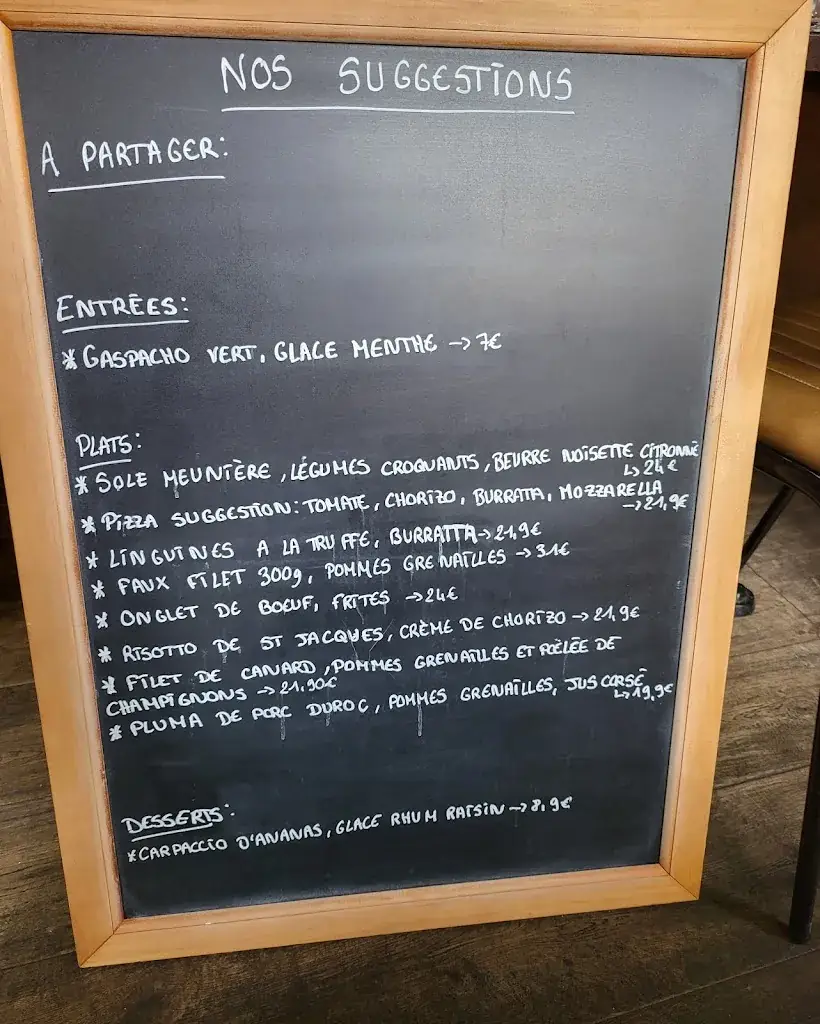 NOS SUGGESTIONS
A PARTAGER:
ENTRÉES:
* GASPACHO VERT, GLACE MENTHE → 7€
PLATS:
* SOLE MEUNIÈRE, LÉGUMES CROQUANTS, BEURRE NOISETTE CITRONNÉ
↳ 24€
* PIZZA SUGGESTION: TOMATE, CHORIZO, BURRATA, MOZZARELLA
→ 21,9€
* LINGUINES A LA TRUFFE, BURRATTA → 21,9€
* FAUX FILET 300g, POMMES GRENAILLES → 31€
* ONGLET DE BOEUF, FRITES → 24€
* RISOTTO DE ST JACQUES, CRÈME DE CHORIZO → 21,9€
* FILET DE CANARD, POMMES GRENAILLES ET POÊLÉE DE
CHAMPIGNONS → 21.90€
* PLUMA DE PORC DUROC, POMMES GRENAILLES, JUS CORSÉ
↳ 19,9€
DESSERTS:
* CARPACCIO D'ANANAS, GLACE RHUM RAISIN → 8,9€